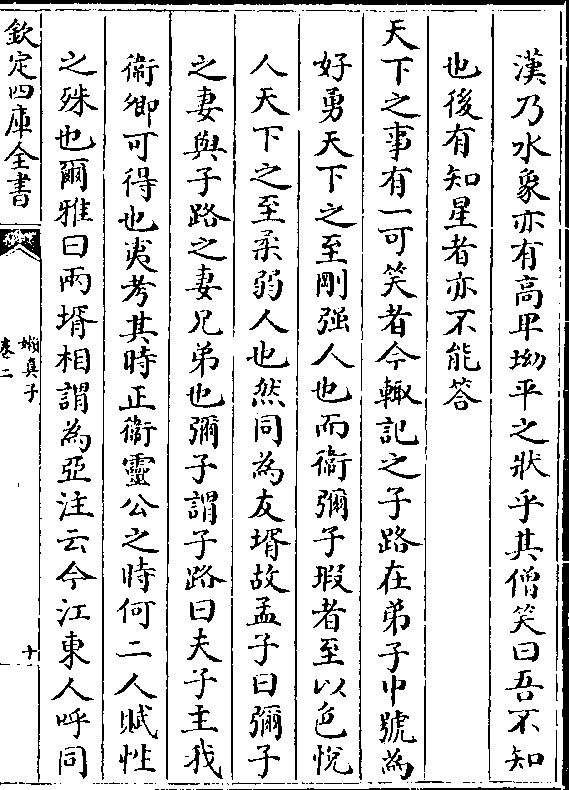 漢乃水象亦有高卑坳平之狀乎其僧笑曰吾不知
也後有知星者亦不能答
天下之事有一可笑者今輙記之子路在弟子中號為
好勇天下之至剛强人也而衞彌子瑕者至以色恱
人天下之至柔弱人也然同為友壻故孟子曰彌子
之妻與子路之妻兄弟也彌子謂子路曰夫子主我
衞卿可得也夷考其時正衞靈公之時何二人賦性
之殊也爾雅曰兩壻相謂為亞注云今江東人呼同
欽定四庫全書
嬾真子
卷二
十